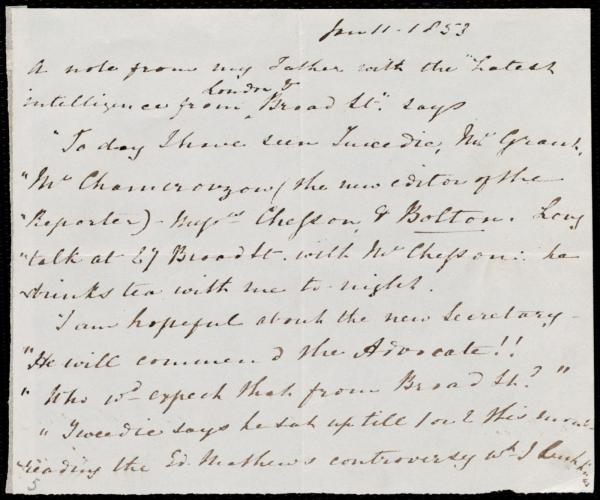 Jan 11 - 1853
A note from my Father with the "Latest
intelligence from London & Broad St." says
"To day I have seen Tweedie, Mr. Grant,
"Mr Chamerovzow (the new editor of the
"Reporter) - Chesson & Bolton. Long
"talk at 27 Broad St. with Mr Chesson: he
drinks tea with me to-night.
"I am hopeful about the new Secretary -
"He will commend the Advocate!!
"Who wd expect that from Broad St.?"
"Tweedie says he sat up till 1 or 2 this morn-
reading the Ed. Mathews controversy wh J
5